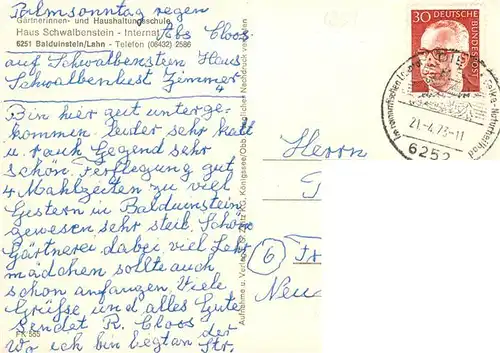 Palmsonntag regen
Gärtnerinnen- und Haushaltungsschule
Haus Schwalbenstein - Internat
Abs Cloos
6251 Balduinstein/Lahn - Telefon (06432) 2586
auf Schwalbenstein Haus
Schwalbenlust Zimmer 4
Bin hier gut unterge-
kommen. leider sehr kalt
u. rauh Gegend sehr
schön. Verflegung gut
4 Mahlzeiten zu viel
Gestern in Balduinstein
gewesen sehr steil. Schöne
Gärtnerei dabei viel Lehr
mädchen sollte auch
schon anfangen. Viele
Grüße und alles Gute
sendet R. Cloos
Wo ich bin
der
Str.
FK 565
Aufnahme u. Verlag
Königssee/Obb.
Nachdruck verboten
Herrn
6
Neu
30 DEUTSCHE
BUNDESPOST
im romantischen
21.-4.73-11
6252